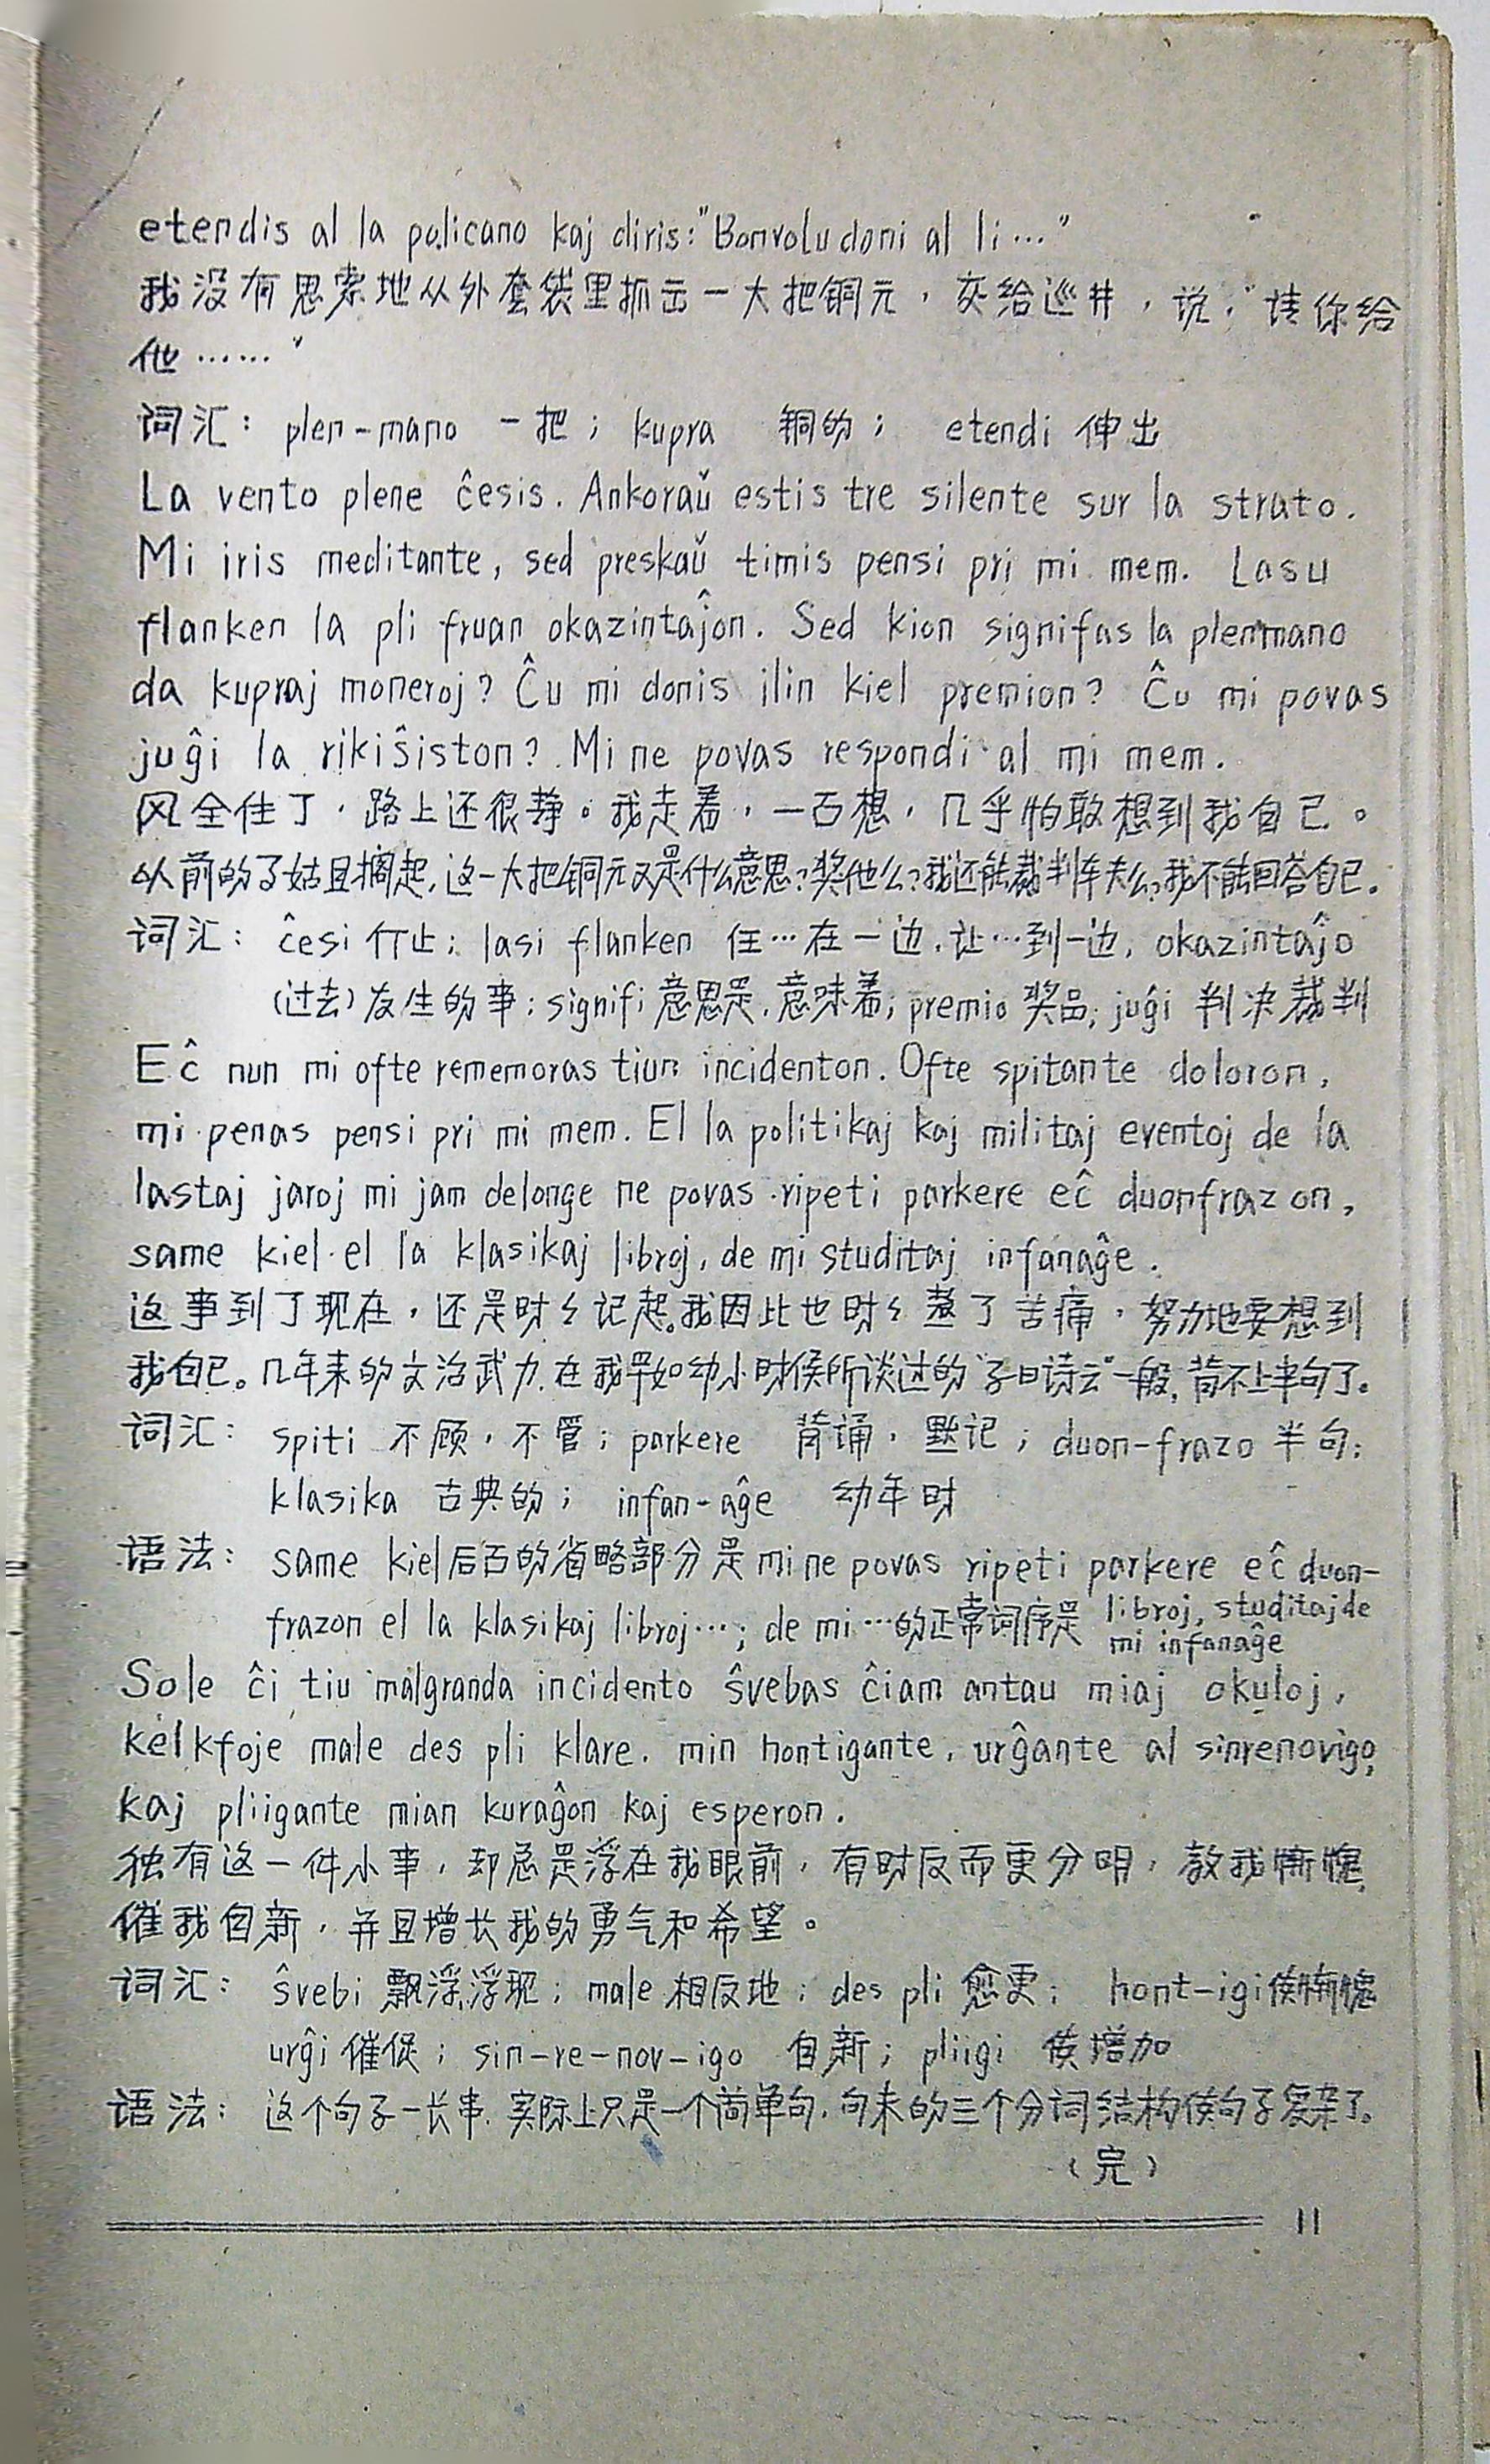 etendis al la policano kaj diris:"Bonvolu doni al li…"
我没有思索地从外套袋里抓出一大把铜元，交给巡井，说："请你给
他……"
词汇： plen-mano 一把； kupra 铜的； etendi 伸出
La vento plene ĉesis. Ankoraŭ estis tre silente sur la strato.
Mi iris meditante, sed preskaŭ timis pensi pri mi mem. Lasu
flanken la pli fruan okazintaĵon. Sed kion signifas la plenmano
da kupraj moneroj? Ĉu mi donis ilin kiel premion? Ĉu mi povas
juĝi la rikiŝiston? Mi ne povas respondi al mi mem.
风全住了，路上还很静。我走着，一面想，几乎怕敢想到我自己。
从前的了姑且搁起，这一大把铜元又是什么意思？奖他么？我还能裁判车夫么？我不能回答自己。
词汇： ĉesi 停止；lasi flanken 任…在一边，让…到一边，okazintaĵo
(过去)发生的事；signifi 意思是，意味着；premio 奖品；juĝi 判决裁判
Eĉ nun mi ofte rememoras tiun incidenton. Ofte spitante doloron,
mi penas pensi pri mi mem. El la politikaj kaj militaj eventoj de la
lastaj jaroj mi jam delonge ne povas ripeti parkere eĉ duonfrazon,
same kiel el la klasikaj libroj, de mi studitaj infanaĝe.
这事到了现在，还是时々记起。我因此也时々熬了苦痛，努力地要想到
我自己。几年来的文治武力，在我早如幼小时候所谈过的"子曰诗云"一般，背不上半句了。
词汇： spiti 不顾，不管；parkere 背诵，默记；duon-frazo 半句；
klasika 古典的； infan-aĝe 幼年时
语法： same kiel后面的省略部分是mi ne povas ripeti parkere eĉ duon-
frazon el la klasikaj libroj…；de mi…的正常词序是 libroj, studitaj de
mi infanaĝe
Sole ĉi tiu malgranda incidento ŝvebas ĉiam antau miaj okuloj,
kelkfoje male des pli klare, min hontigante, urĝante al sinrenovigo,
kaj pliigante mian kuraĝon kaj esperon.
独有这一件小事，却总是浮在我眼前，有时反而更分明，教我惭愧，
催我自新，并且增长我的勇气和希望。
词汇： ŝvebi 飘浮，浮现；male 相反地；des pli 愈更； hont-igi使惭愧
urĝi 催促；sin-re-nov-igo 自新；pliigi 使增加
语法： 这个句子一长串，实际上只是一个简单句，句末的三个分词结构使句子复杂了。
（完）
11